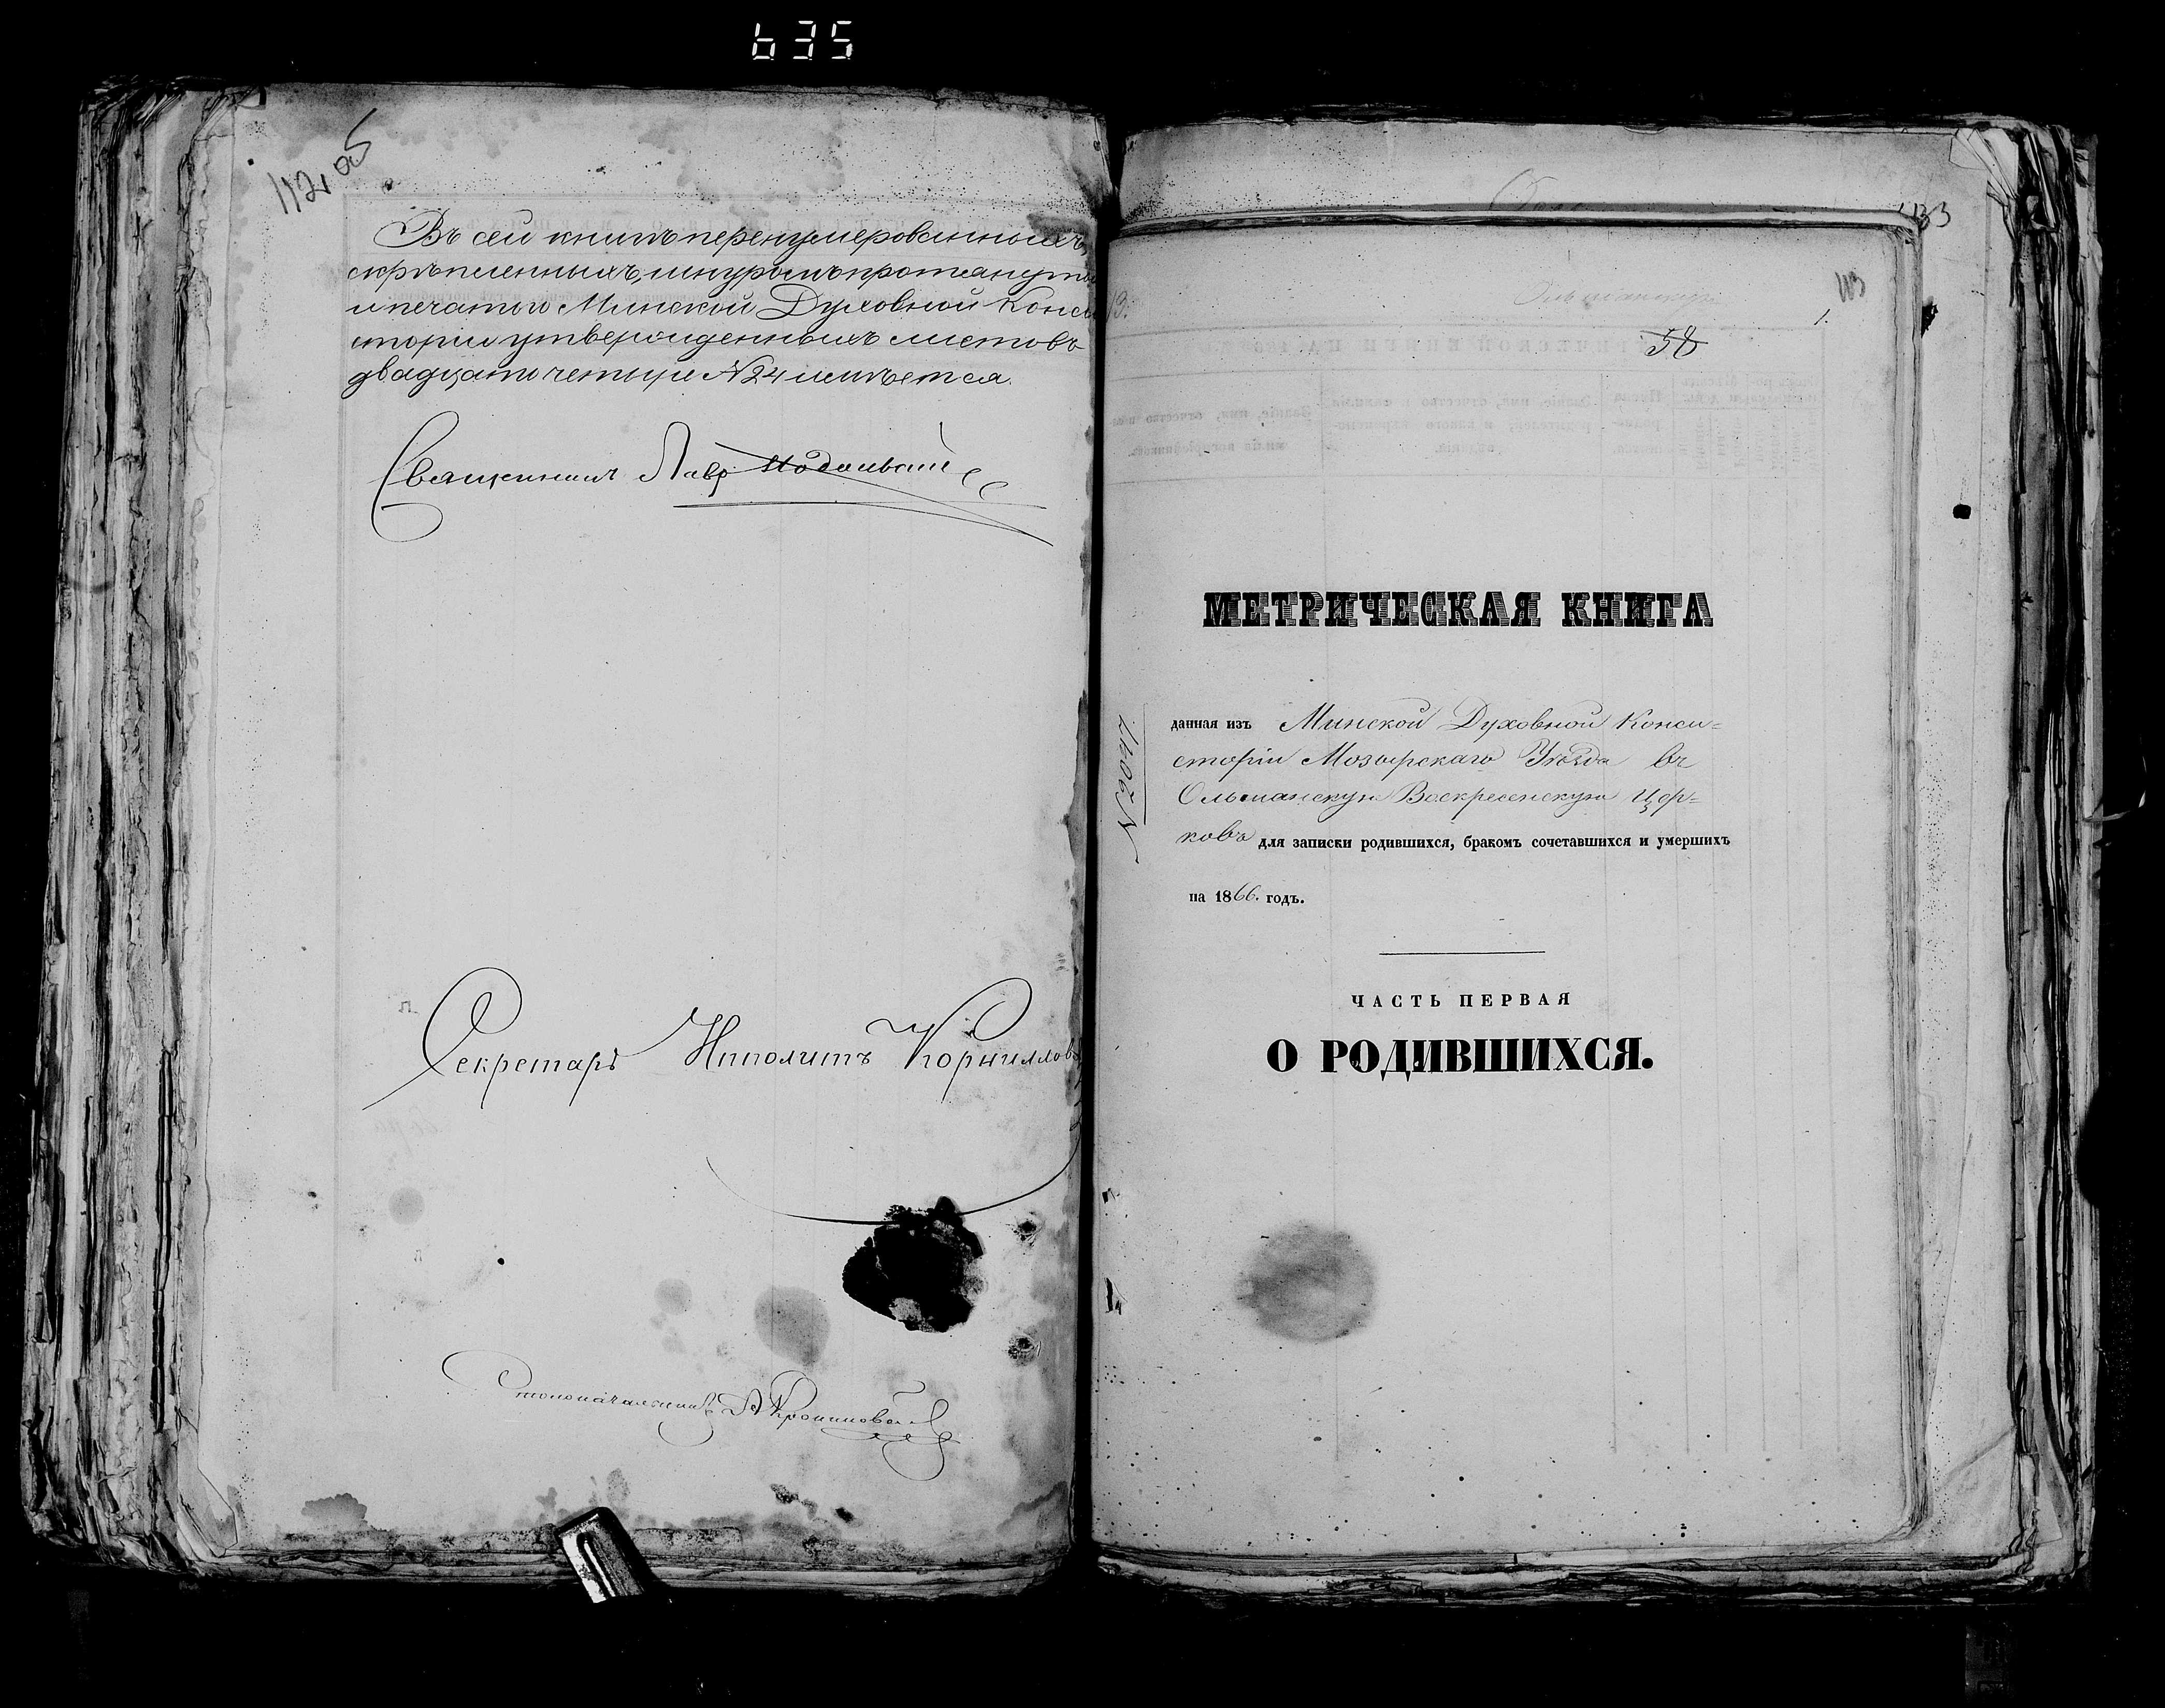 635
112 об
Въ сей книгѣ перенумерованныхъ,
скрѣпленныхъ, шнуромъ протянуты
и печатью Минской Духовной Конси
сторіи утвержденныхъ листовъ
двадцать четыре №24 имѣется.
Священникъ Лавр
Секретарь Ипполитъ Корнилов
Столоначальникъ
133
113
1.
58
МЕТРИЧЕСКАЯ КНИГА
данная изъ Минской Духовной Конси=
сторіи Мозырскаго Уѣзда въ
Ольманскую Воскресенскую Цер=
ковь для записки родившихся, бракомъ сочетавшихся и умершихъ
на 1866. годъ.
ЧАСТЬ ПЕРВАЯ
О РОДИВШИХСЯ.